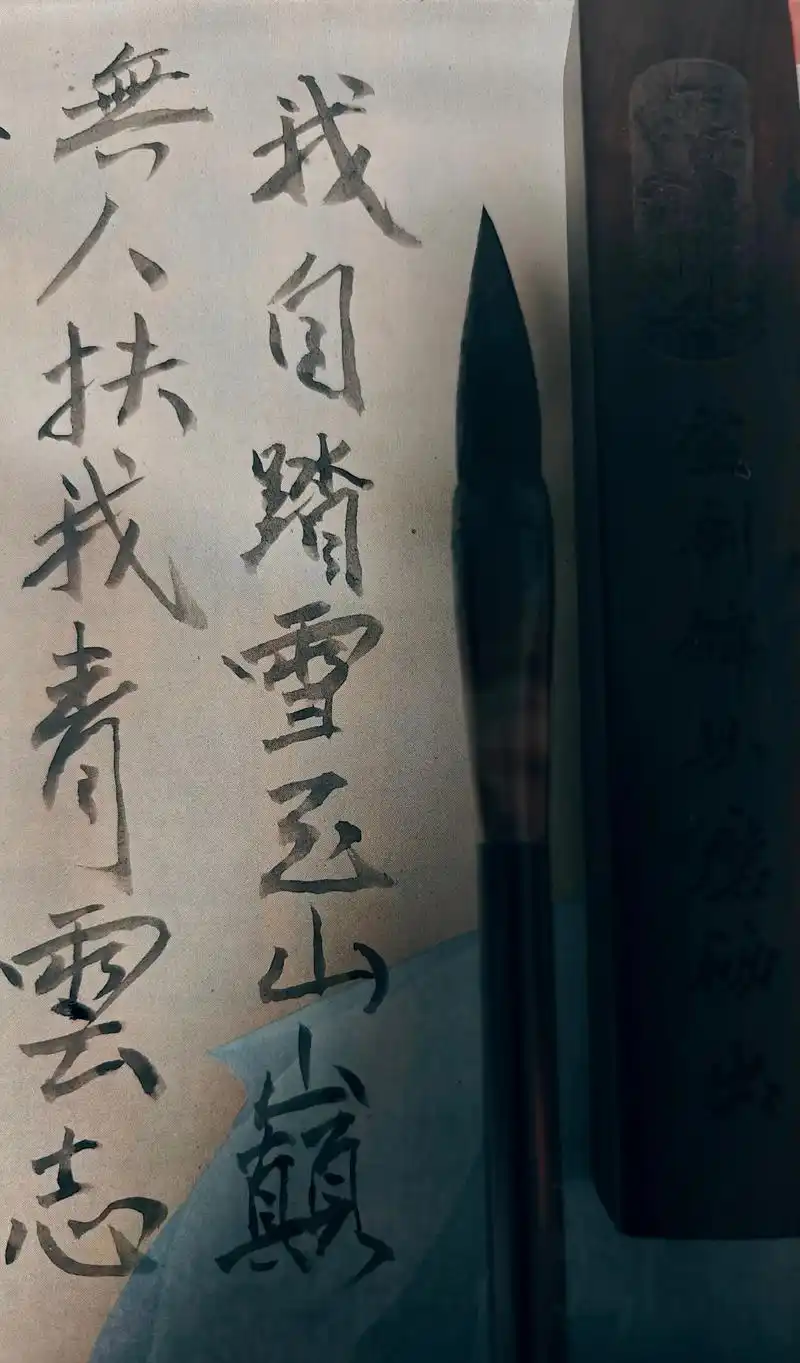 我自踏雪至山巔
無人扶我青雲志